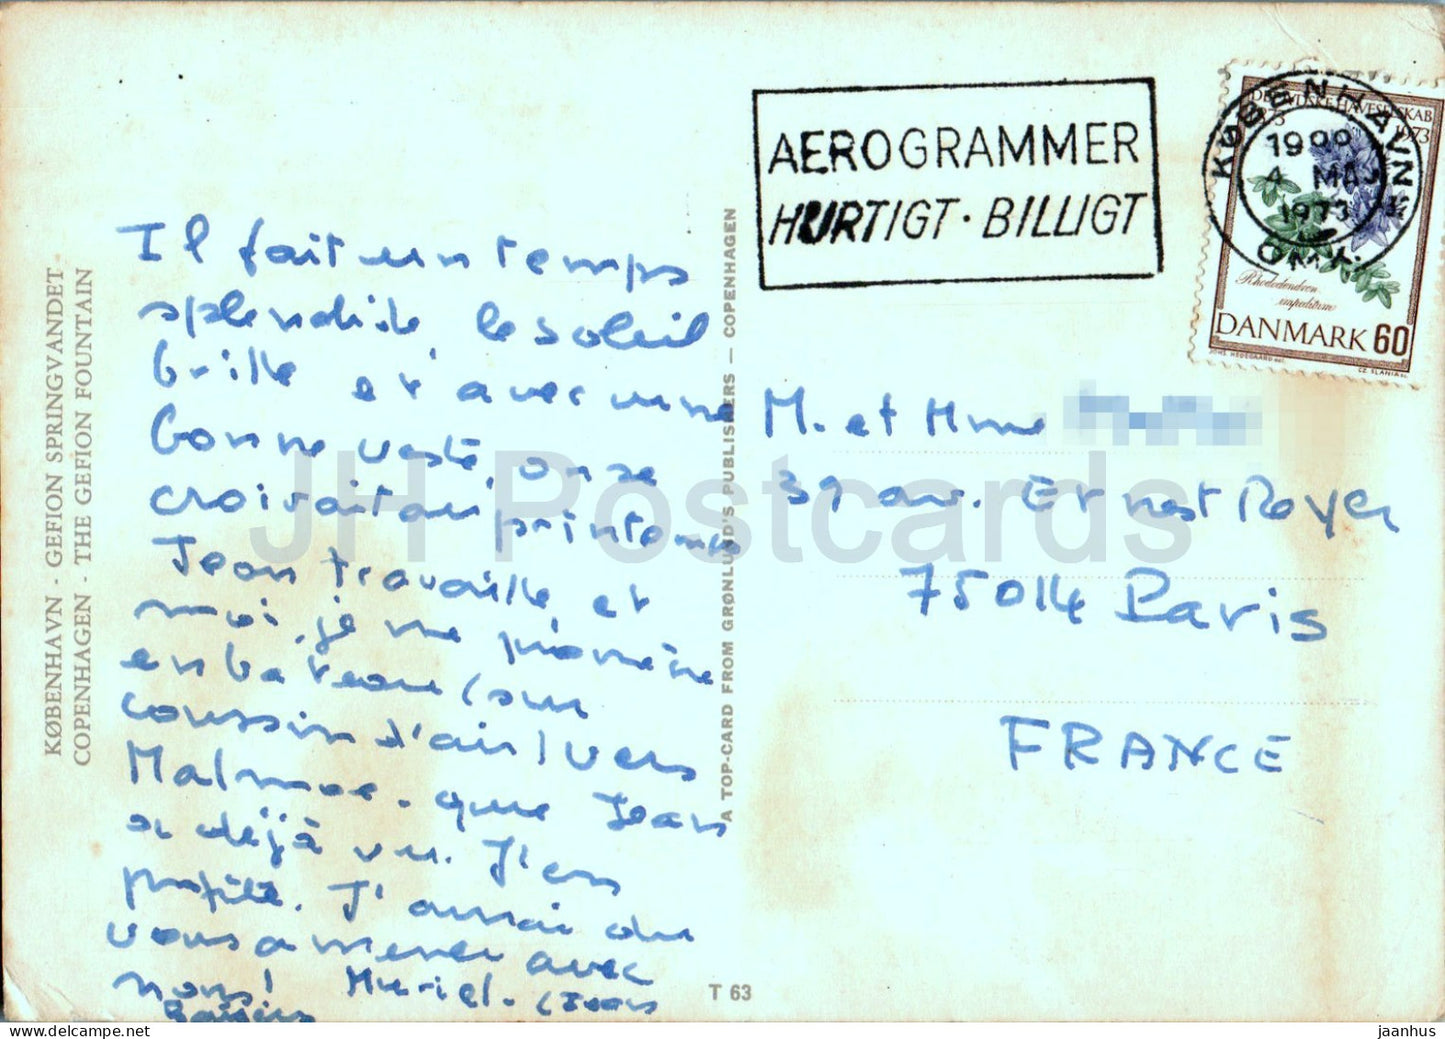 KØBENHAVN - GEFION SPRINGVANDET
COPENHAGEN - THE GEFION FOUNTAIN
Il fait un temps
splendide, le soleil
brille et avec une
bonne veste, on se
croirait au printemps
Jean travaille et
moi, je me promène
en bateau (sur
coussin d'air) vers
Malmoe. que Jean
a déjà vu. J'en
profite. J'aurai du
vous amener avec
nous! Muriel. (Jean
Baisers
A TOP-CARD FROM GRØNLUND'S PUBLISHERS - COPENHAGEN
T 63
AEROGRAMMER
HURTIGT · BILLIGT
KØBENHAVN
OMK.
1900
4 MAJ
1973
HAVESELSKAB
1973
Rhododendron
impeditum
DANMARK 60
M. et Mme
39 av. Ernest Reyer
75014 Paris
FRANCE
JH Postcards
jaanhus